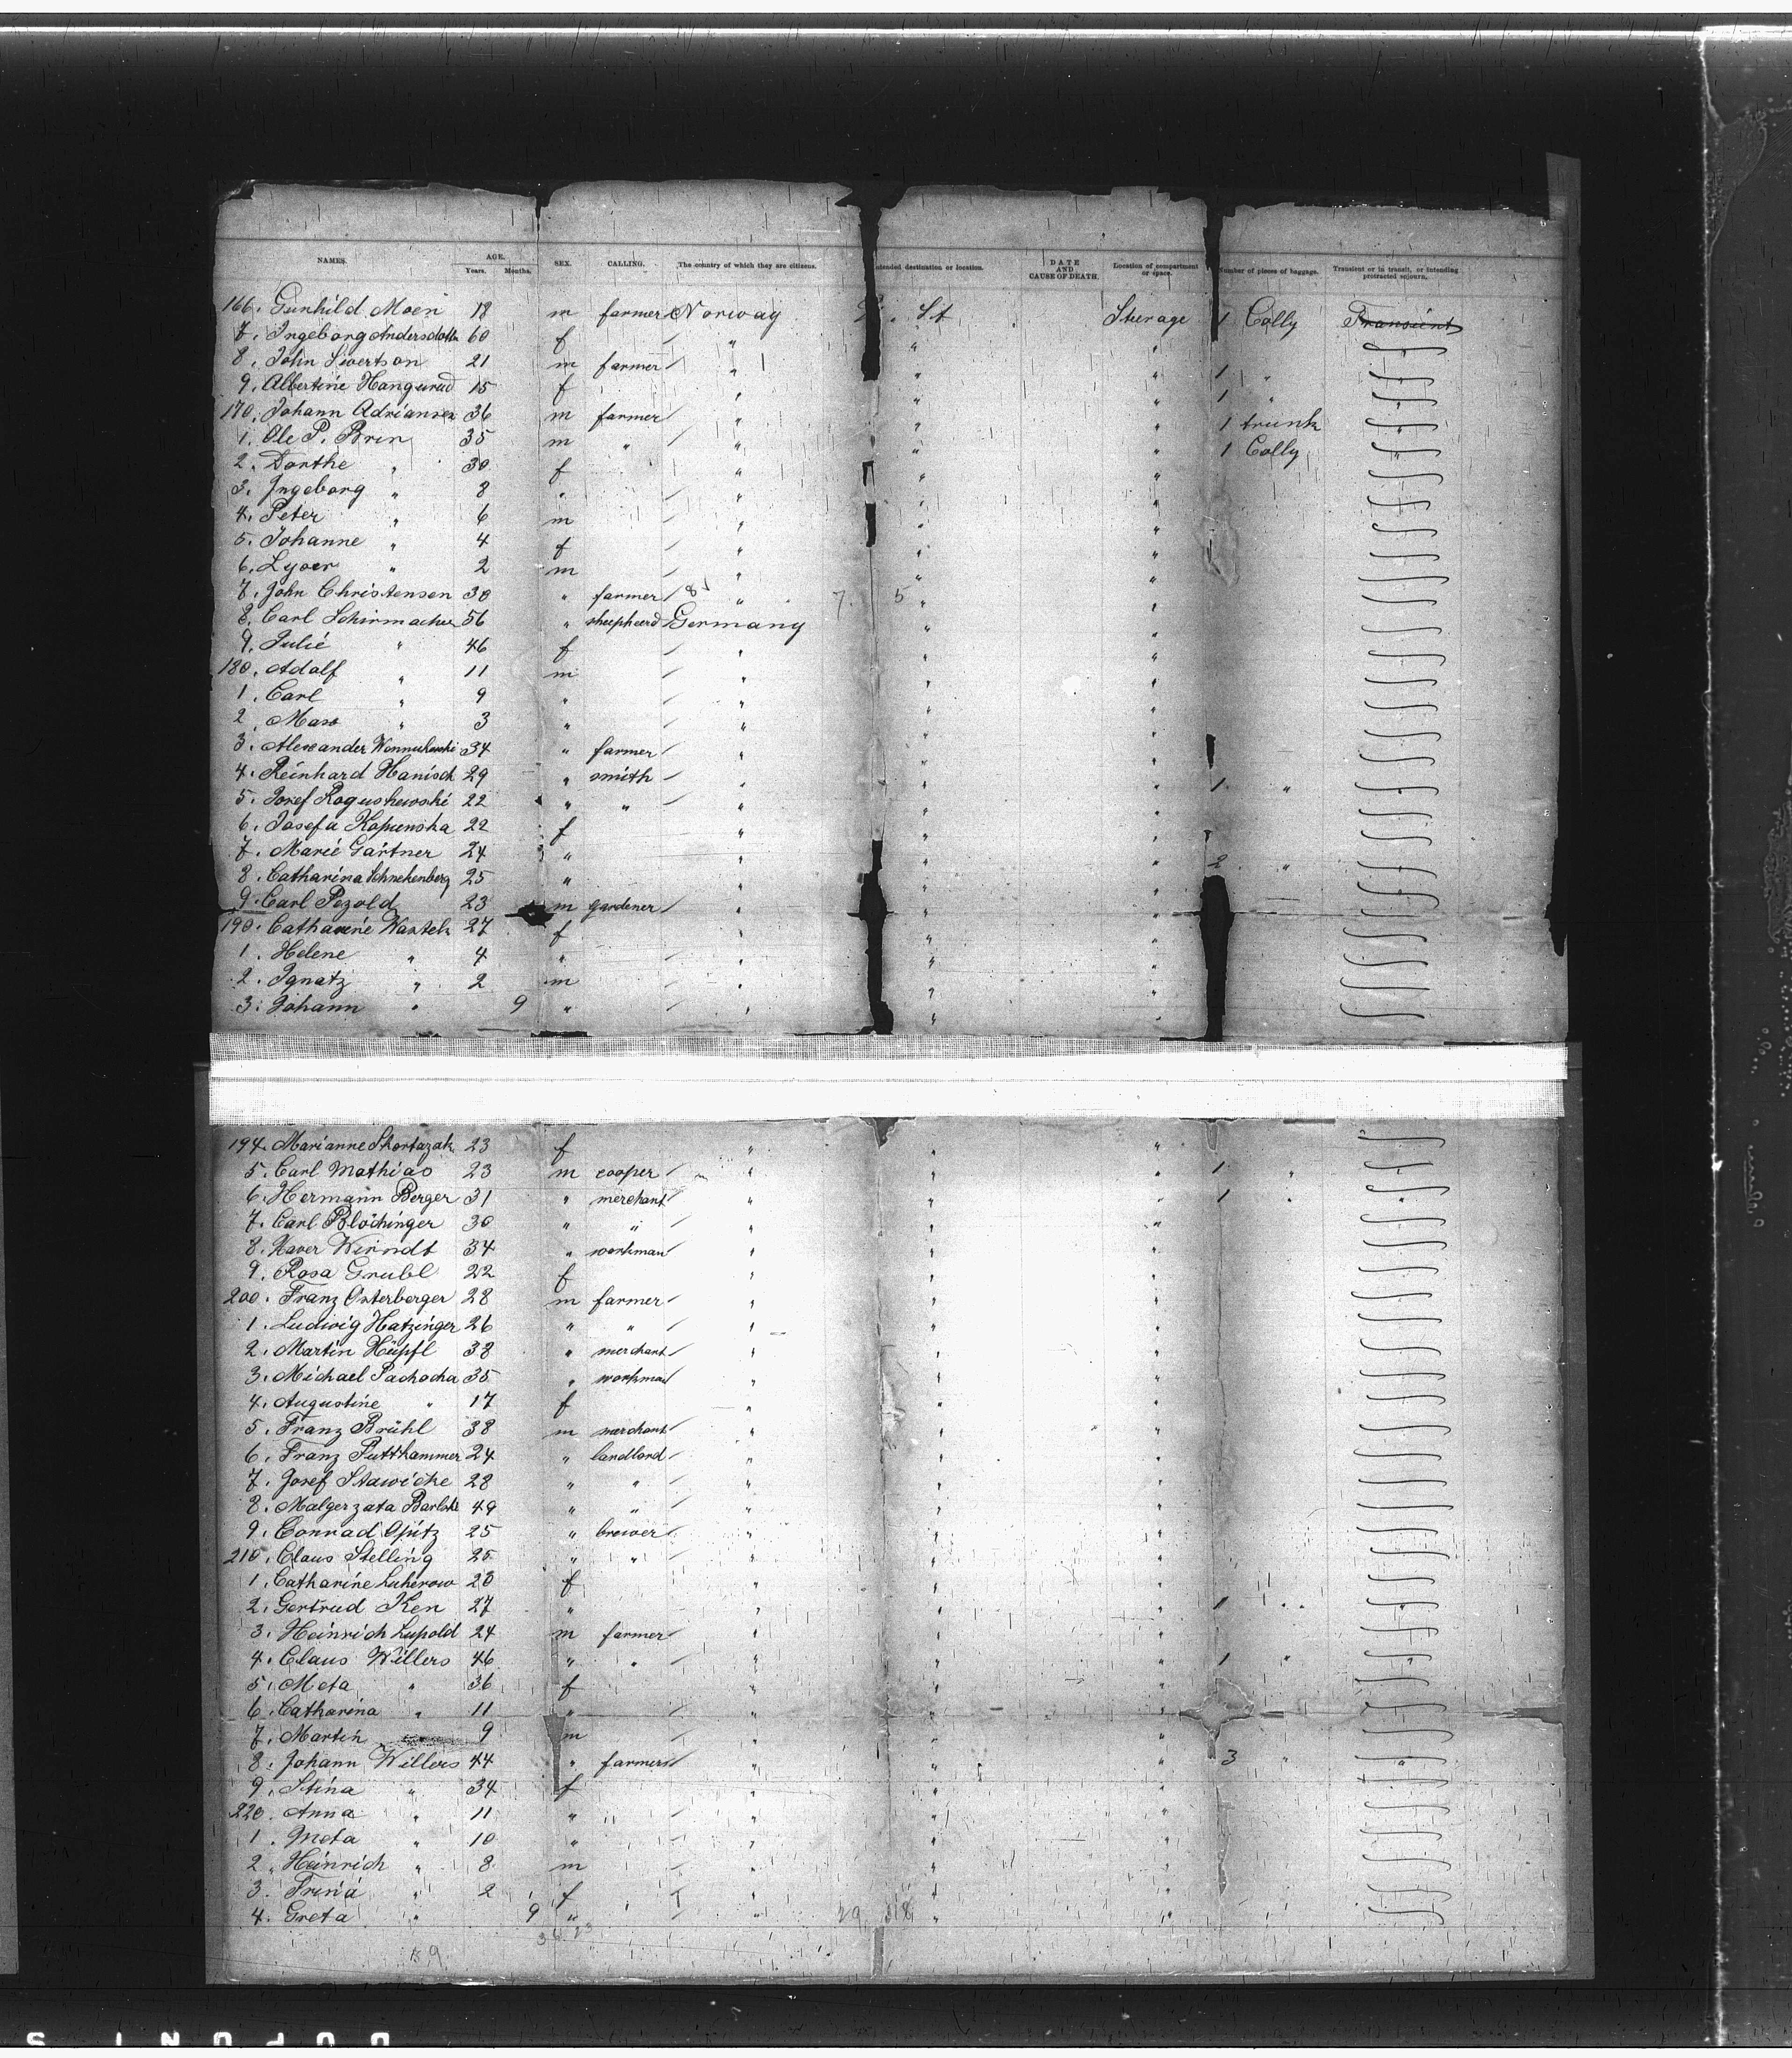 NAMES. AGE. Years. Months. SEX. CALLING. The country of which they are citizens. Intended destination or location. DATE AND CAUSE OF DEATH. Location of compartment or space. Number of pieces of baggage. Transient or in transit, or intending protracted sojourn.
166. Gunhild Moen 18 m farmer Norway St Steerage 1 Colly Transient
7. Ingeborg 60 f " " "
8. John Sivertson 21 m farmer " " " 1 "
9. Albertine Hangerud 15 f " " " 1 "
170. Johann Adriansen 36 m farmer " " " 1 trunk "
1. Ole P. Bren 35 m " " " " 1 Colly "
2. Dorthe " 30 f " " "
3. Ingeborg " 8 " " " "
4. Peter " 6 m " " "
5. Johanne " 4 f " " "
6. " 2 m " " "
7. John Christensen 38 " farmer 8 " 7. 5 " "
8. Carl Schirmacher 56 " sheepheerd Germany " "
9. Julie " 46 f " " "
180. Adolf " 11 m " " "
1. Carl " 9 " " " "
2. Max " 3 " " " "
3. Alexander 34 " farmer " " "
4. Reinhard Hanisch 29 " smith " " " 1 "
5. Josef Roguschewski 22 " " " " "
6. Josefa Kopienska 22 f " " "
7. Marie Gärtner 24 " " " " 2 "
8. Catharina Schnekenberg 25 " " " "
9. Carl Pezold 23 m gardener " " "
190. Catharine Wastek 27 f " " "
1. Helene " 4 " " " "
2. Ignatz " 2 m " " "
3. Johann " 9 " " " "
194. Marianne 23 f " " "
5. Carl Mathias 23 m cooper " " " 1 "
6. Hermann Berger 31 " merchant " " " 1 " "
7. Carl Blöchinger 30 " " " " "
8. Xaver Winndt 34 " workman " " "
9. Rosa Grubl 22 f " " "
200. Franz Osterberger 28 m farmer " " "
1. Ludwig Hatzinger 26 " " " " "
2. Martin Hüpfl 38 " merchant " " "
3. Michael Pachocha 35 " workman " " "
4. Augustine " 17 f " " "
5. Franz Brühl 38 m merchant " " "
6. Franz Putthammer 24 " landlord " " "
7. Josef Stawicke 28 " " " " "
8. Malgerzata 49 " " " " "
9. Conrad Opitz 25 " brewer " " "
210. Claus Stelling 25 " " " " "
1. Catharine 20 f " " "
2. Gertrud Ken 27 " " " " 1 " "
3. Heinrich Lupold 24 m farmer " " "
4. Claus Willers 46 " " " " " 1 " "
5. Meta " 36 f " " "
6. Catharina " 11 " " " "
7. Martin 9 m " " "
8. Johann Willers 44 " farmers " " " 3 " "
9. Stina " 34 f " " "
220. Anna " 11 " " " "
1. Meta " 10 " " " "
2. Heinrich " 8 m " " "
3. Trina " 2 f " " "
4. Greta " 9 " " 29 318 " "